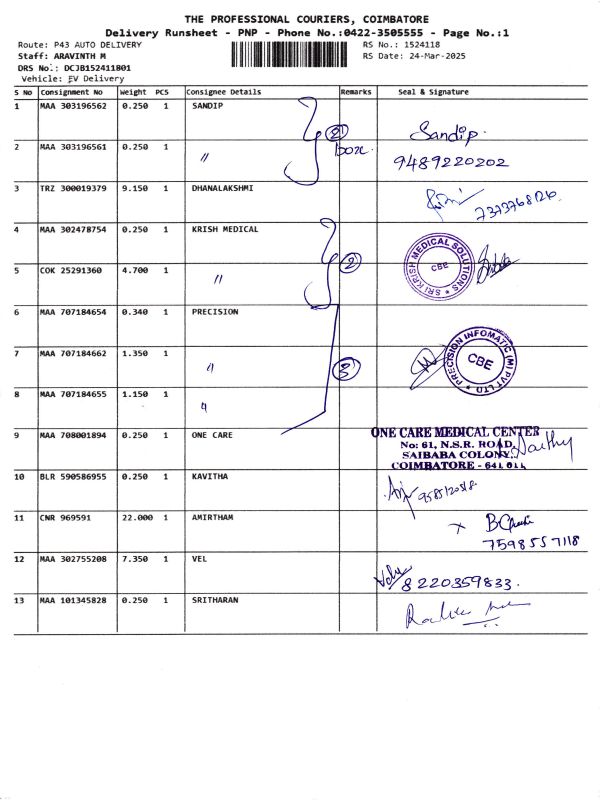 THE PROFESSIONAL COURIERS, COIMBATORE
Delivery Runsheet - PNP - Phone No.:0422-3505555 - Page No.:1
Route: P43 AUTO DELIVERY
RS No.: 1524118
Staff: ARAVINTH M
RS Date: 24-Mar-2025
DRS No.: DCJB152411801
Vehicle: EV Delivery
S No Consignment No Weight PCS Consignee Details Remarks Seal & Signature
1 MAA 303196562 0.250 1 SANDIP 2 Sandip.
2 MAA 303196561 0.250 1 〃 9489220202
3 TRZ 300019379 9.150 1 DHANALAKSHMI
4 MAA 302478754 0.250 1 KRISH MEDICAL
SRI KRISH MEDICAL SOLUTIONS * CBE
5 COK 25291360 4.700 1 〃 2
6 MAA 707184654 0.340 1 PRECISION
PRECISION INFOMATIC (M) PVT LTD * CBE
7 MAA 707184662 1.350 1 〃 3
8 MAA 707184655 1.150 1 〃
9 MAA 708001894 0.250 1 ONE CARE
ONE CARE MEDICAL CENTER
No: 61, N.S.R. ROAD,
SAIBABA COLONY,
COIMBATORE - 641 011
10 BLR 590586955 0.250 1 KAVITHA
11 CNR 969591 22.000 1 AMIRTHAM x
7598557118
12 MAA 302755208 7.350 1 VEL Velu
8220359833.
13 MAA 101345828 0.250 1 SRITHARAN